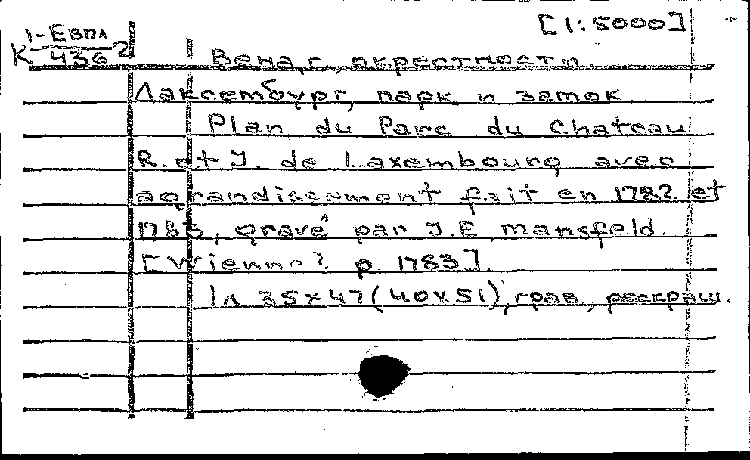 1-Евпл
К 436²
[1:5000]
Вена, г., окрестности.
Лаксембург, парк и замок
Plan du Parc du Chateau
R. et I. de Laxembourg avec
agrandissement fait en 1782 et
1783, gravé par J.E. mansfeld.
[Vienne? p. 1783].
1л 35x47 (40x51), грав., раскраш.